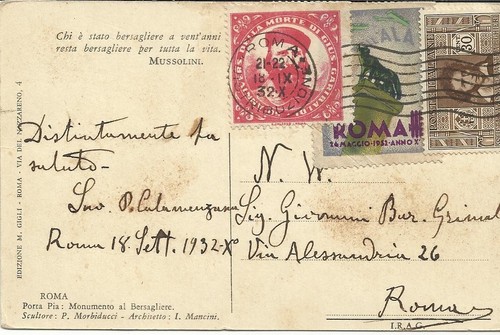 Chi è stato bersagliere a vent'anni
resta bersagliere per tutta la vita.
MUSSOLINI.
MORTE DI GIUS. GARIBALDI
ROMA
21-22
18·IX
32·X
ALA
ROMA III
24 MAGGIO · 1932 · ANNO X
30
EDIZIONE M. GIGLI - ROMA - VIA DEL NAZZARENO, 4
Distintamente la
saluto -
Roma 18. Sett. 1932-Xº
N. W.
Sig. Giovanni
Via Alessandria 26
Roma
ROMA
Porta Pia: Monumento al Bersagliere.
Scultore: P. Morbiducci - Architetto: I. Mancini.
I.R.A.G.